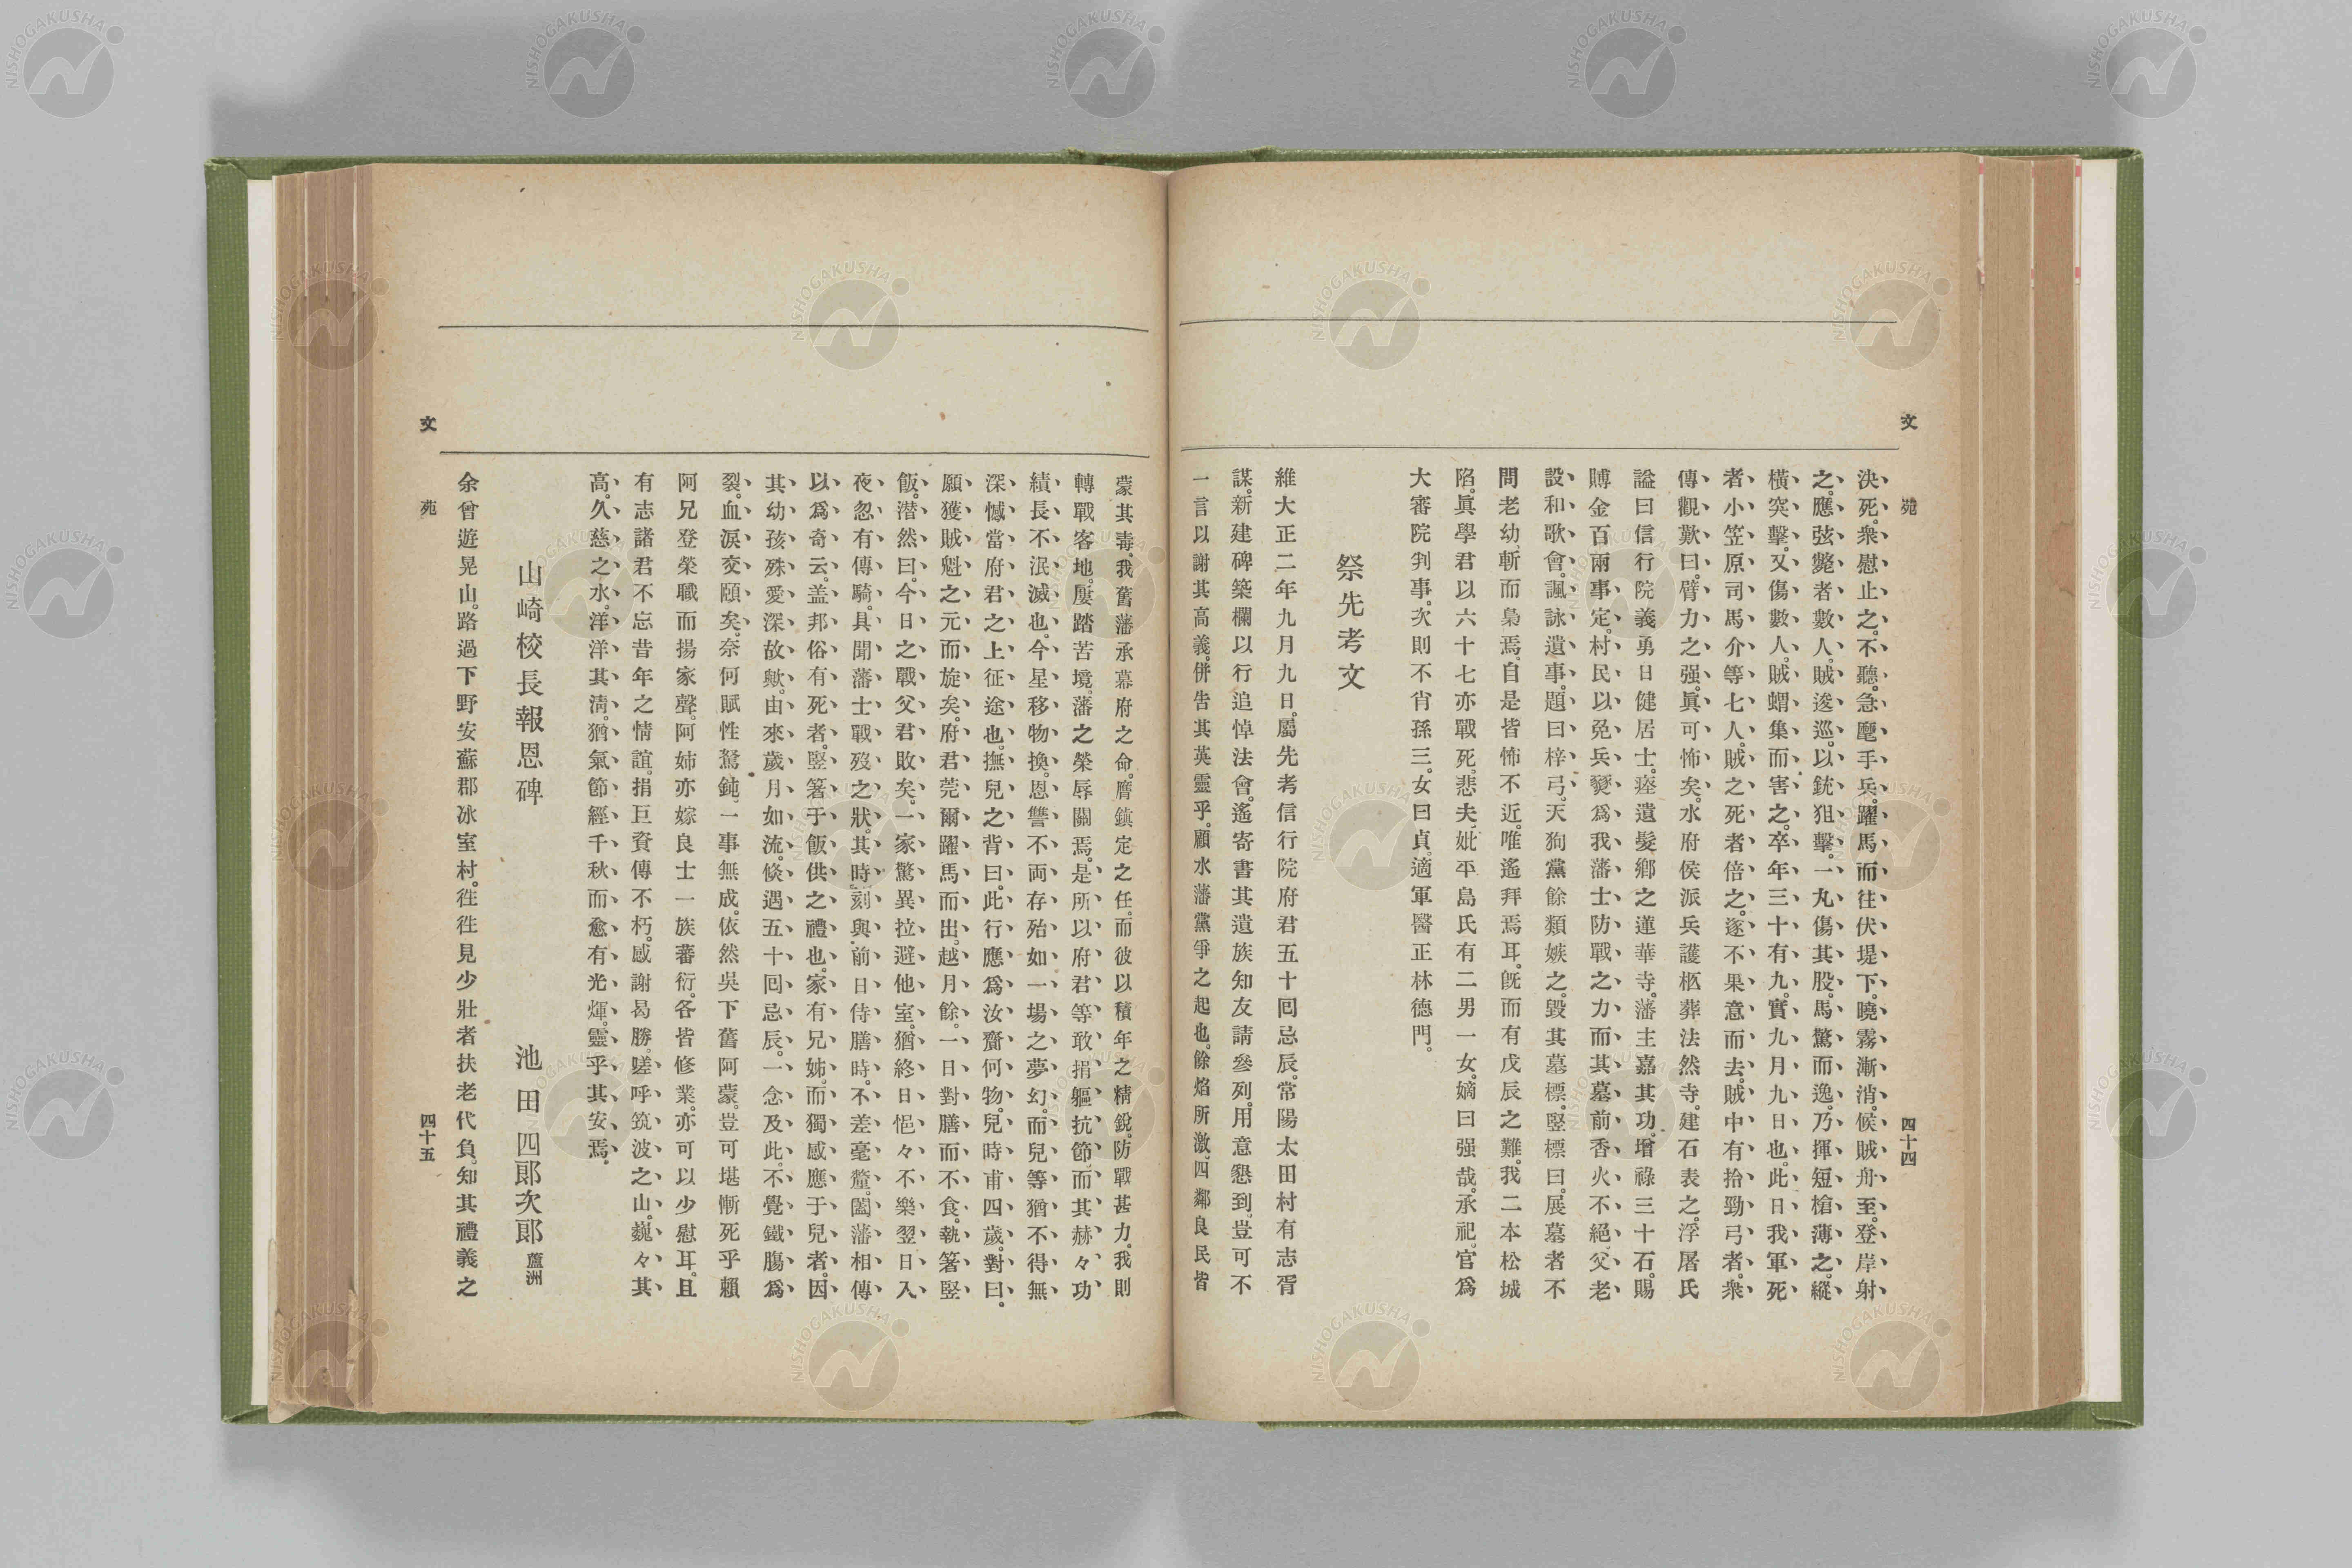 文苑
四十四
決死。衆慰止之。不聽。急麾手兵。躍馬而往伏堤下。曉霧漸消。候賊舟至。登岸射
之。應弦斃者數人。賊逡巡。以銃狙擊。一丸傷其股。馬驚而逸。乃揮短槍薄之。縱
橫突擊。又傷數人。賊蝟集而害之。卒年三十有九。實九月九日也。此日我軍死
者小笠原司馬介等七人。賊之死者倍之。遂不果意而去。賊中有拾勁弓者。衆
傳觀歎曰。臂力之强。眞可怖矣。水府侯派兵護柩葬法然寺。建石表之。浮屠氏
謚曰信行院義勇日健居士。瘞遺髮鄕之蓮華寺。藩主嘉其功。增祿三十石。賜
賻金百兩。事定。村民以免兵燹爲我藩士防戰之力。而其墓前香火不絕。父老
設和歌會。諷詠遺事。題曰梓弓。天狗黨餘類嫉之。毀其墓標。竪標曰。展墓者不
問老幼。斬而梟焉。自是皆怖不近。唯遙拜焉耳。旣而有戊辰之難。我二本松城
陷。眞學君以六十七亦戰死。悲夫。妣平島氏有二男一女。嫡曰强哉。承祀。官爲
大審院判事。次則不肖孫三。女曰貞。適軍醫正林德門。
祭先考文
維大正二年九月九日。屬先考信行院府君五十囘忌辰。常陽太田村有志胥
謀。新建碑築欄以行追悼法會。遙寄書其遺族知友請參列。用意懇到。豈可不
一言以謝其高義。併告其英靈乎。顧水藩黨爭之起也。餘焰所激。四鄰良民皆
蒙其毒。我舊藩承幕府之命。膺鎭定之任。而彼以積年之精銳。防戰甚力。我則
轉戰客地。屢踏苦境。藩之榮辱關焉。是所以府君等敢捐軀抗節。而其赫々功
績。長不泯滅也。今星移物換。恩讐不両存。殆如一場之夢幻。而兒等猶不得無
深憾。當府君之上征途也。撫兒之背曰。此行應爲汝齎何物。兒時甫四歲。對曰。
願獲賊魁之元而旋矣。府君莞爾躍馬而出。越月餘。一日對膳而不食。執箸竪
飯。潸然曰。今日之戰父君敗矣。一家驚異拉避他室。猶終日悒々不樂。翌日入
夜。忽有傳騎。具聞藩士戰歿之狀。其時刻與前日侍膳時。不差毫釐。闔藩相傳
以爲奇云。盖邦俗有死者。竪箸于飯供之禮也。家有兄姊。而獨感應于兒者。因
其幼孩殊愛深故歟。由來歲月如流。倐遇五十囘忌辰。一念及此。不覺鐵腸爲
裂。血淚交頤矣。奈何賦性駑鈍。一事無成。依然吳下舊阿蒙。豈可堪慚死乎。賴
阿兄登榮職而揚家聲。阿姉亦嫁良士一族蕃衍。各皆修業。亦可以少慰耳。且
有志諸君不忘昔年之情誼。捐巨資傳不朽。感謝曷勝。嗟呼筑波之山。巍々其
高。久慈之水。洋洋其淸。猶氣節經千秋而愈有光煇。靈乎其安焉。
山崎校長報恩碑
池田四郞次郞 蘆洲
余曾遊晃山。路過下野安蘇郡氷室村。徃徃見少壯者扶老代負。知其禮義之
文苑
四十五
NISHOGAKUSHA